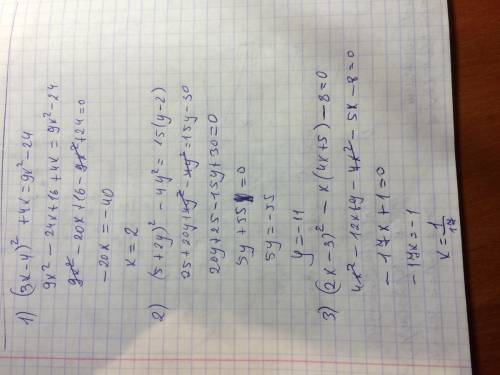 1) (3x-4)² +4x=9x²-24
9x²-24x+16+4x=9x²-24
9x²-20x+16-9x²+24=0
-20x=-40
x=2
2) (5+2y)²-4y²=15(y-2)
25+20y+4y²-4y²=15y-30
20y+25-15y+30=0
5y+55=0
5y=-55
y=-11
3) (2x-3)²-x(4x+5)-8=0
4x²-12x+9-4x²-5x-8=0
-17x+1=0
-17x=-1
x=1/17